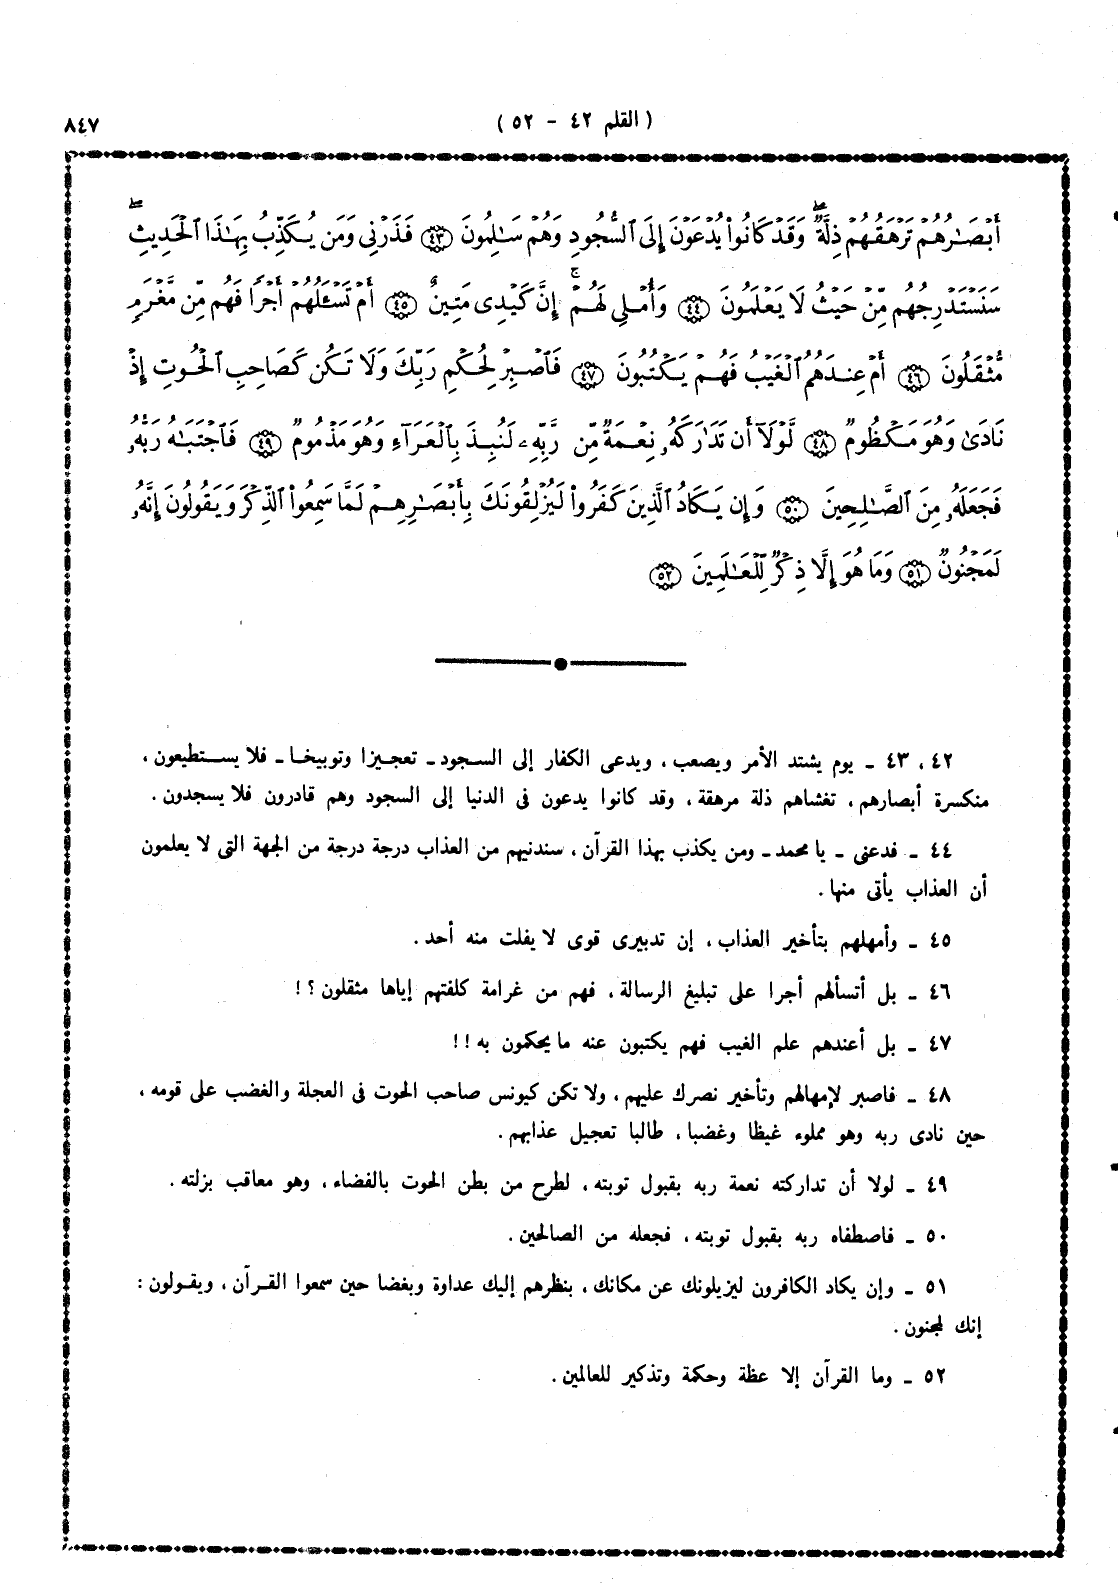 ٨٤٧
( القلم ٤٢ – ٥٢ )
أَبْصَٰرُهُمْ تَرْهَقُهُمْ ذِلَّةٌ ۖ وَقَدْ كَانُوا۟ يُدْعَوْنَ إِلَى ٱلسُّجُودِ وَهُمْ سَٰلِمُونَ ٤٣ فَذَرْنِى وَمَن يُكَذِّبُ بِهَٰذَا ٱلْحَدِيثِ ۖ
سَنَسْتَدْرِجُهُم مِّنْ حَيْثُ لَا يَعْلَمُونَ ٤٤ وَأُمْلِى لَهُمْ ۚ إِنَّ كَيْدِى مَتِينٌ ٤٥ أَمْ تَسْـَٔلُهُمْ أَجْرًا فَهُم مِّن مَّغْرَمٍ
مُّثْقَلُونَ ٤٦ أَمْ عِندَهُمُ ٱلْغَيْبُ فَهُمْ يَكْتُبُونَ ٤٧ فَٱصْبِرْ لِحُكْمِ رَبِّكَ وَلَا تَكُن كَصَاحِبِ ٱلْحُوتِ إِذْ
نَادَىٰ وَهُوَ مَكْظُومٌ ٤٨ لَّوْلَآ أَن تَدَٰرَكَهُۥ نِعْمَةٌ مِّن رَّبِّهِۦ لَنُبِذَ بِٱلْعَرَآءِ وَهُوَ مَذْمُومٌ ٤٩ فَٱجْتَبَٰهُ رَبُّهُۥ
فَجَعَلَهُۥ مِنَ ٱلصَّٰلِحِينَ ٥٠ وَإِن يَكَادُ ٱلَّذِينَ كَفَرُوا۟ لَيُزْلِقُونَكَ بِأَبْصَٰرِهِمْ لَمَّا سَمِعُوا۟ ٱلذِّكْرَ وَيَقُولُونَ إِنَّهُۥ
لَمَجْنُونٌ ٥١ وَمَا هُوَ إِلَّا ذِكْرٌ لِّلْعَٰلَمِينَ ٥٢
٤٢ ، ٤٣ ــ يوم يشتد الأمر ويصعب ، ويدعى الكفار إلى السجود ــ تعجيزا وتوبيخا ــ فلا يستطيعون ،
منكسرة أبصارهم ، تغشاهم ذلة مرهقة ، وقد كانوا يدعون فى الدنيا إلى السجود وهم قادرون فلا يسجدون .
٤٤ ــ فدعنى ــ يا محمد ــ ومن يكذب بهذا القرآن ، سندنيهم من العذاب درجة درجة من الجهة التى لا يعلمون
أن العذاب يأتى منها .
٤٥ ــ وأمهلهم بتأخير العذاب ، إن تدبيرى قوى لا يفلت منه أحد .
٤٦ ــ بل أتسألهم أجرا على تبليغ الرسالة ، فهم من غرامة كلفتهم إياها مثقلون ؟ !
٤٧ ــ بل أعندهم علم الغيب فهم يكتبون عنه ما يحكمون به ! !
٤٨ ــ فاصبر لإمهالهم وتأخير نصرك عليهم ، ولا تكن كيونس صاحب الحوت فى العجلة والغضب على قومه ،
حين نادى ربه وهو مملوء غيظا وغضبا ، طالبا تعجيل عذابهم .
٤٩ ــ لولا أن تداركته نعمة ربه بقبول توبته ، لطرح من بطن الحوت بالفضاء ، وهو معاقب بزلته .
٥٠ ــ فاصطفاه ربه بقبول توبته ، فجعله من الصالحين .
٥١ ــ وإن يكاد الكافرون ليزيلونك عن مكانك ، بنظرهم إليك عداوة وبغضا حين سمعوا القرآن ، ويقولون :
إنك لمجنون .
٥٢ ــ وما القرآن إلا عظة وحكمة وتذكير للعالمين .